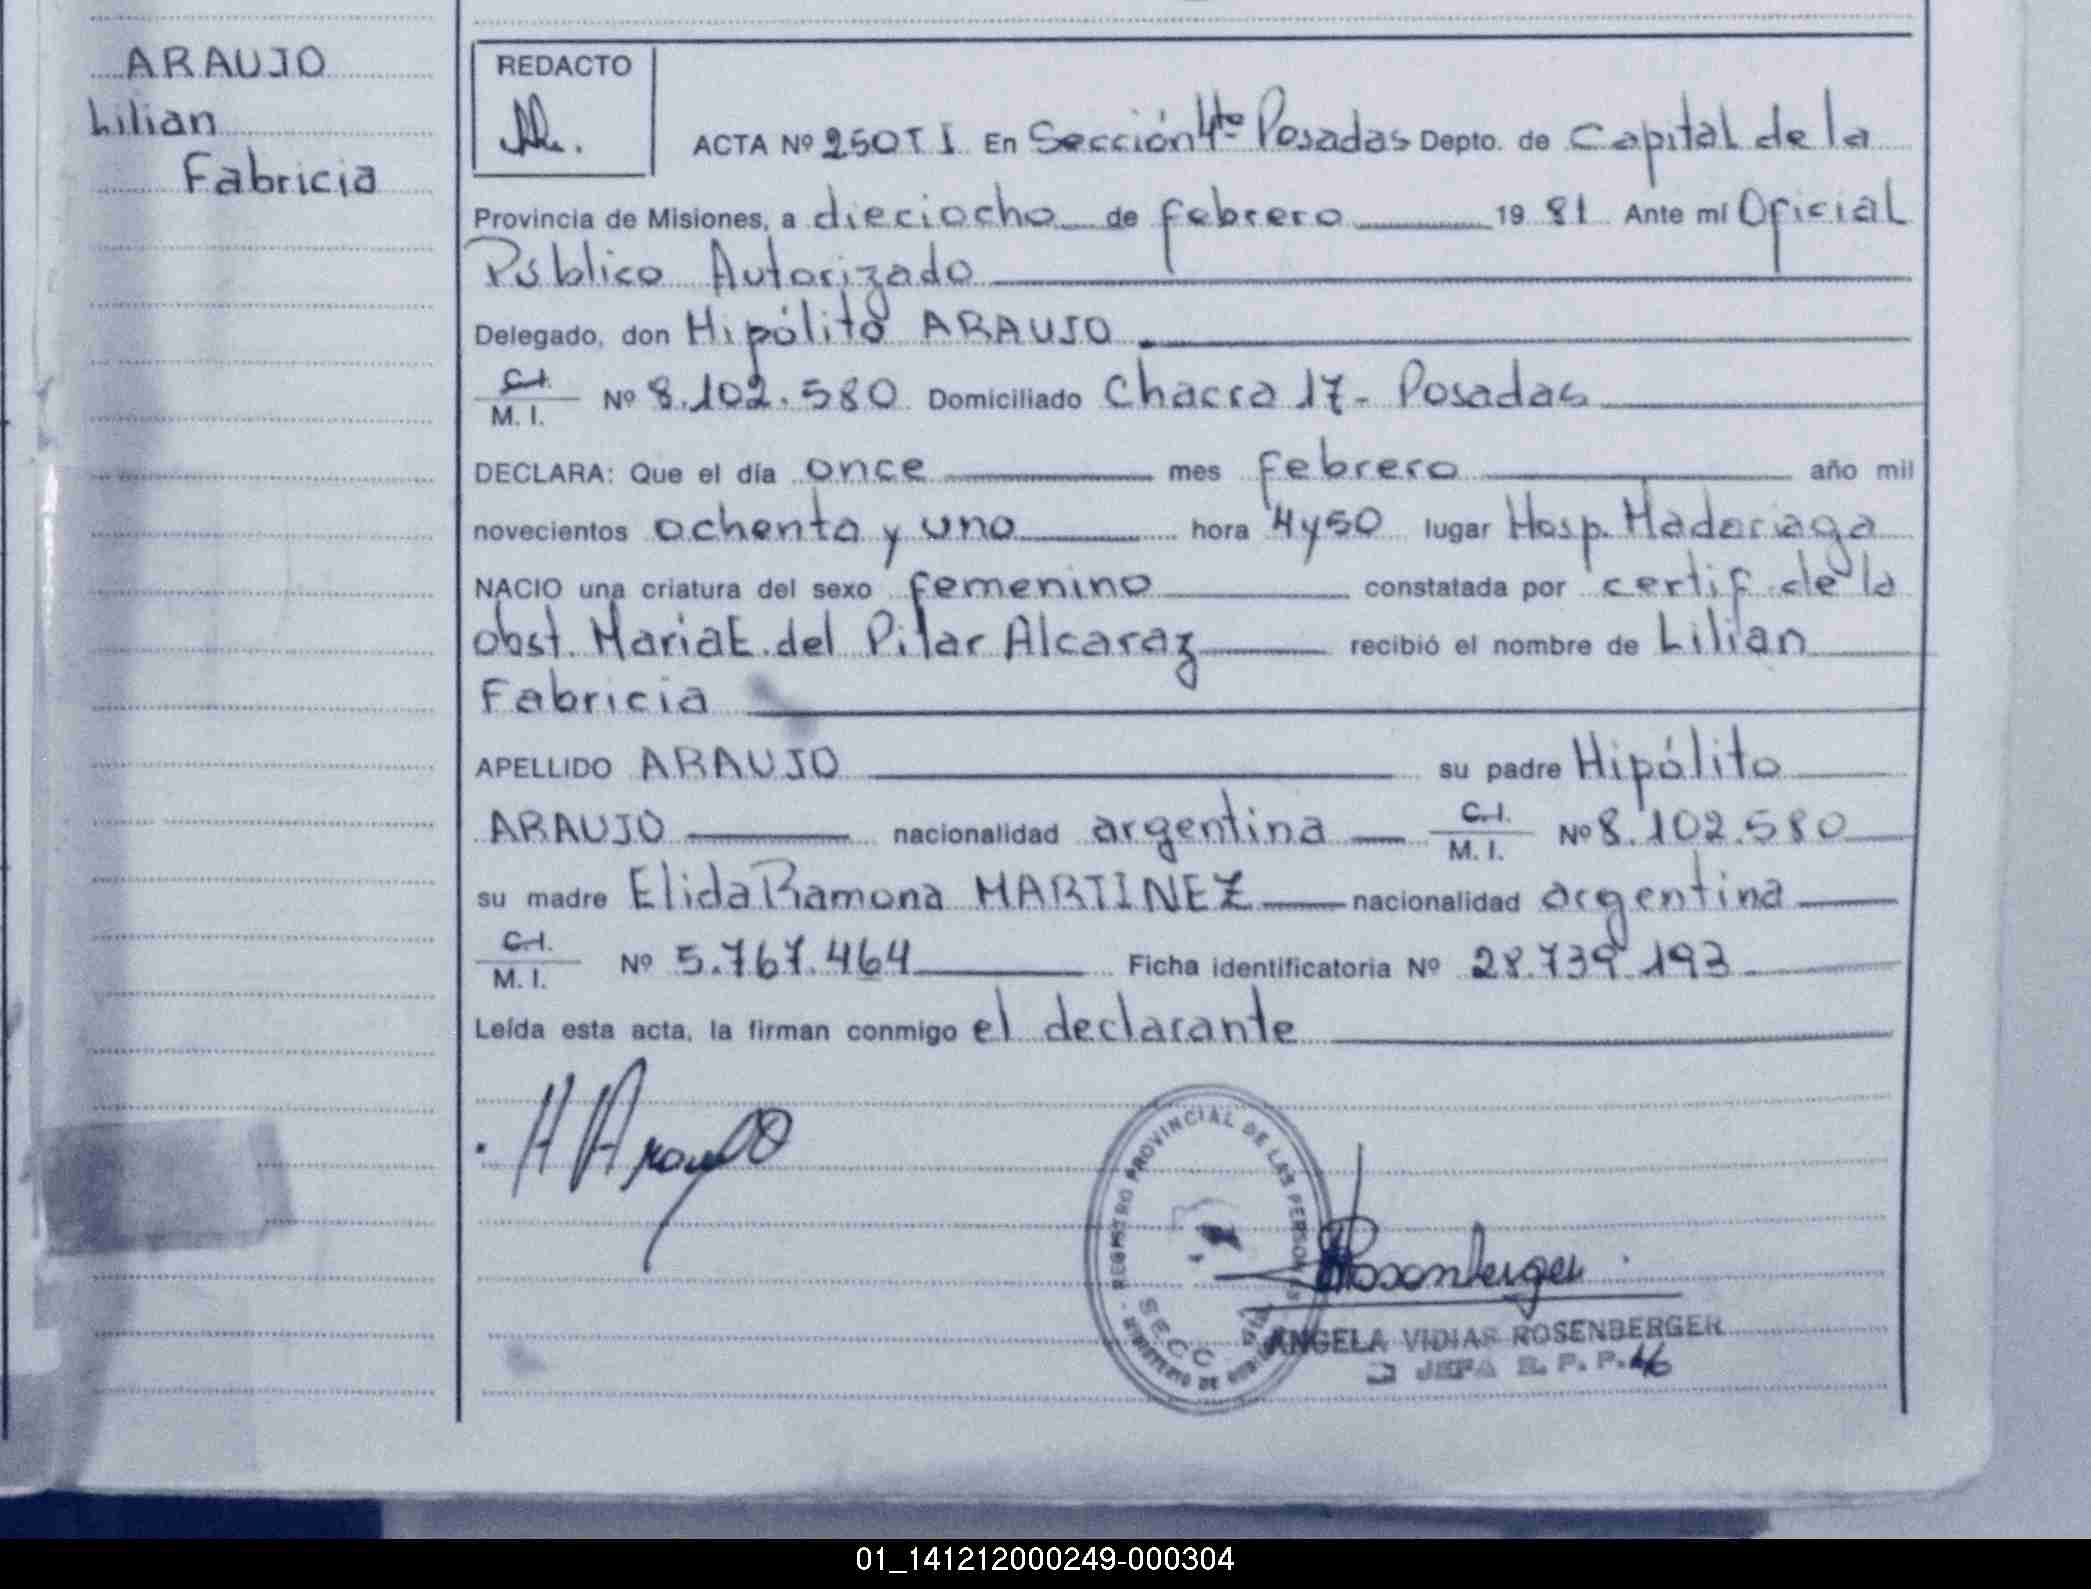 ARAUJO
Lilian
Fabricia
REDACTO
ACTA Nº 250 T I. En Sección 4ta Posadas Depto. de Capital de la
Provincia de Misiones, a dieciocho de febrero 1981 Ante mí Oficial
Público Autorizado
Delegado, don Hipólito ARAUJO
C.I.
M. I. Nº 8.102.580 Domiciliado Chacra 17- Posadas
DECLARA: Que el día once mes febrero año mil
novecientos ochenta y uno hora 4y50 lugar Hosp. Madariaga
NACIO una criatura del sexo femenino constatada por certif. de la
obst. Maria E. del Pilar Alcaraz recibió el nombre de Lilian
Fabricia
APELLIDO ARAUJO su padre Hipólito
ARAUJO nacionalidad argentina C.I.
M. I. Nº 8.102.580
su madre Elida Ramona MARTINEZ nacionalidad argentina
C.I.
M. I. Nº 5.767.464 Ficha identificatoria Nº 28.739.193
Leída esta acta, la firman conmigo el declarante
H Araujo
REGISTRO PROVINCIAL DE LAS PERSONAS
SECC. 4ta
MINISTERIO DE GOBIERNO
Rosenberger
ANGELA VIDIAS ROSENBERGER
JEFA R. P. P.
01_141212000249-000304